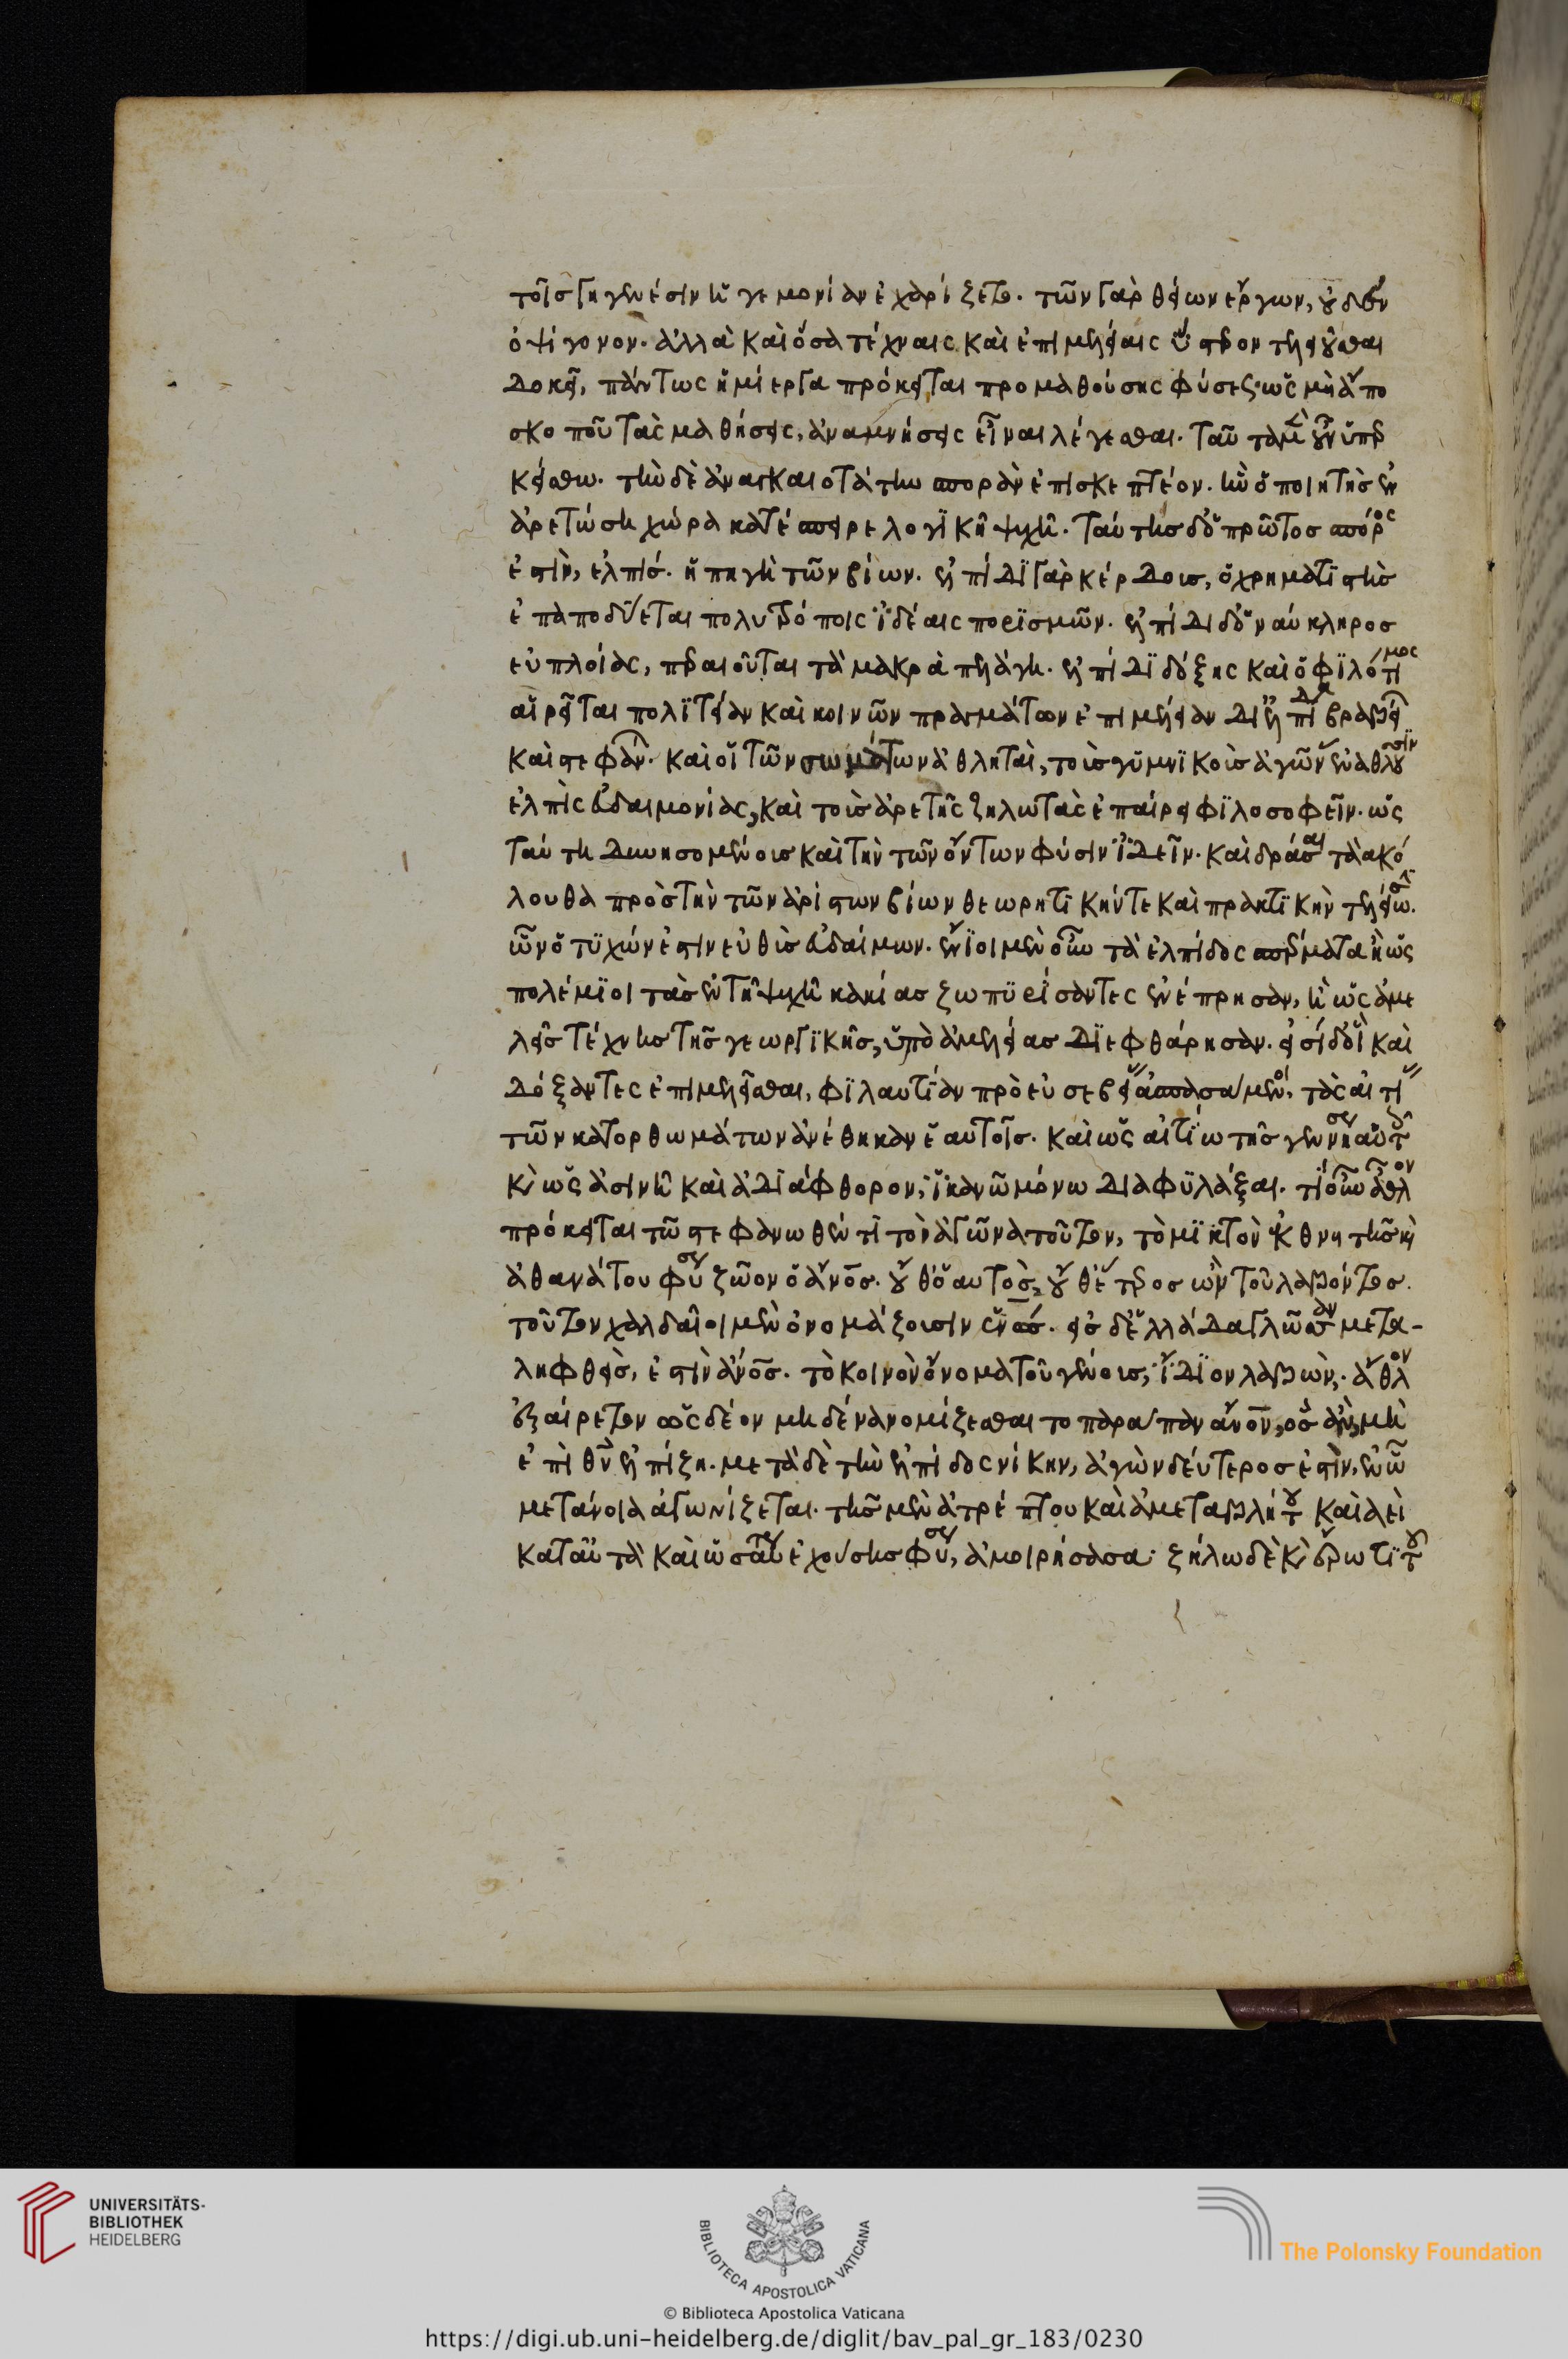 τοῖς γηγενέσιν ἡγεμονίαν ἐχαρίζετο. τῶν γὰρ θείων ἔργων, οὐδὲν
ὀψίγονον. ἀλλὰ καὶ ὅσα τέχναις καὶ ἐπιμελείαις ὕστερον τελειοῦσθαι
δοκεῖ, πάντως ἡμίεργα πρόκειται προμαθούσης φύσεως. ὡς μὴ ἀπο
σκοποῦ τὰς μαθήσεις, ἀναμνήσεις εἶναι λέγεσθαι. ταῦτα μὲν οὖν ὑπερ
κείσθω. τὴν δὲ ἀναγκαιοτάτην σπορὰν ἐπισκεπτέον. ἣν ὁ ποιητὴς ἐν
ἀρετώσῃ χώρα κατέσπειρε λογικῇ ψυχῇ. ταύτης δ' ὁ πρῶτος σπόρος
ἐστὶν, ἐλπίς. ἡ πηγὴ τῶν βίων. ἐλπίδι γὰρ κέρδους, ὁ χρηματιστὴς
ἐπαποδύεται πολυτρόποις ἰδέαις πορισμῶν. ἐλπίδι δ' ὁ ναύκληρος
εὐπλοίας, περαιοῦται τὰ μακρὰ πελάγη. ἐλπίδι δόξης καὶ ὁ φιλότιμος
αἱρεῖται πολιτείαν καὶ κοινῶν πραγμάτων ἐπιμέλειαν δι' ἐλπίδα βραβείων
καὶ στεφάνων. καὶ οἱ τῶν σωμάτων ἀθληταὶ, τοὺς γυμνικοὺς ἀγῶνας διαθλοῦσιν
ἐλπὶς εὐδαιμονίας, καὶ τοὺς ἀρετῆς ζηλωτὰς ἐπαίρει φιλοσοφεῖν. ὡς
ταύτῃ δυνησομένους καὶ τὴν τῶν ὄντων φύσιν ἰδεῖν. καὶ δράσαι τὰ ἀκό
λουθα πρὸς τὴν τῶν ἀρίστων βίων θεωρητικήν τε καὶ πρακτικὴν τελείωσιν.
ὧν ὁ τυχών ἐστιν εὐθὺς εὐδαίμων. ἔνιοι μὲν οὖν τὰ ἐλπίδος σπέρματα ἢ ὡς
πολέμιοι τὰς ἐν τῇ ψυχῇ κακίας ζωπυρήσαντες ἐνέπρησαν, ἢ ὡς ἀμε
λεῖς τέχνης τῆς γεωργικῆς, ὑπὸ ἀμελείας διεφθάρησαν. εἰσὶ δ' οἳ καὶ
δόξαντες ἐπιμελεῖσθαι, φιλαυτίαν πρὸ εὐσεβείας ἀσπασάμενοι, τὰς αἰτίας
τῶν κατορθωμάτων ἀνέθηκαν ἑαυτοῖς. καὶ ὡς αἰτίω τῆς γεννήσεως αὐτοῦ
καὶ ὡς ἀσινῆ καὶ ἀδιάφθορον, ἱκανῶ μόνω διαφυλάξαι. τί οὖν ἆθλον
πρόκειται τῶ στεφανωθέντι τὸν ἀγῶνα τοῦτον, τὸ μικτὸν ἐκ θνητῆς καὶ
ἀθανάτου φύσεως ζῶον ὁ ἄνος. οὔθ' ὁ αὐτὸς, οὔθ' ἕτερος ὢν τοῦ λαβόντος.
τοῦτον χαλδαῖοι μὲν ὀνομάζουσιν ἐνώς. εἰς δὲ ἑλλάδα γλῶσσαν μετα-
ληφθεὶς, ἐστὶν ἄνος. τὸ κοινὸν ὄνομα τοῦ γένους, ἴδιον λαβὼν, ἆθλον
ἐξαίρετον ὡς δέον μηδένα νομίζεσθαι τοπαράπαν ἄνον, ὃς ἂν, μὴ
ἐπὶ θν ἐλπίζη. μετὰ δὲ τὴν ἐλπίδος νίκην, ἀγὼν δεύτερος ἐστὶν, ἐν ὧ
μετάνοια ἀγωνίζεται. τῆς μὲν ἀτρέπτου καὶ ἀμεταβλήτου καὶ ἀεὶ
κατὰ ταυτὰ καὶ ὡσαύτως ἐχούσης φύσεως, ἀμοιρήσασα. ζήλω δὲ καὶ ἔρωτι τοῦ
UNIVERSITÄTS-
BIBLIOTHEK
HEIDELBERG
BIBLIOTECA APOSTOLICA VATICANA
The Polonsky Foundation
© Biblioteca Apostolica Vaticana
https://digi.ub.uni-heidelberg.de/diglit/bav_pal_gr_183/0230